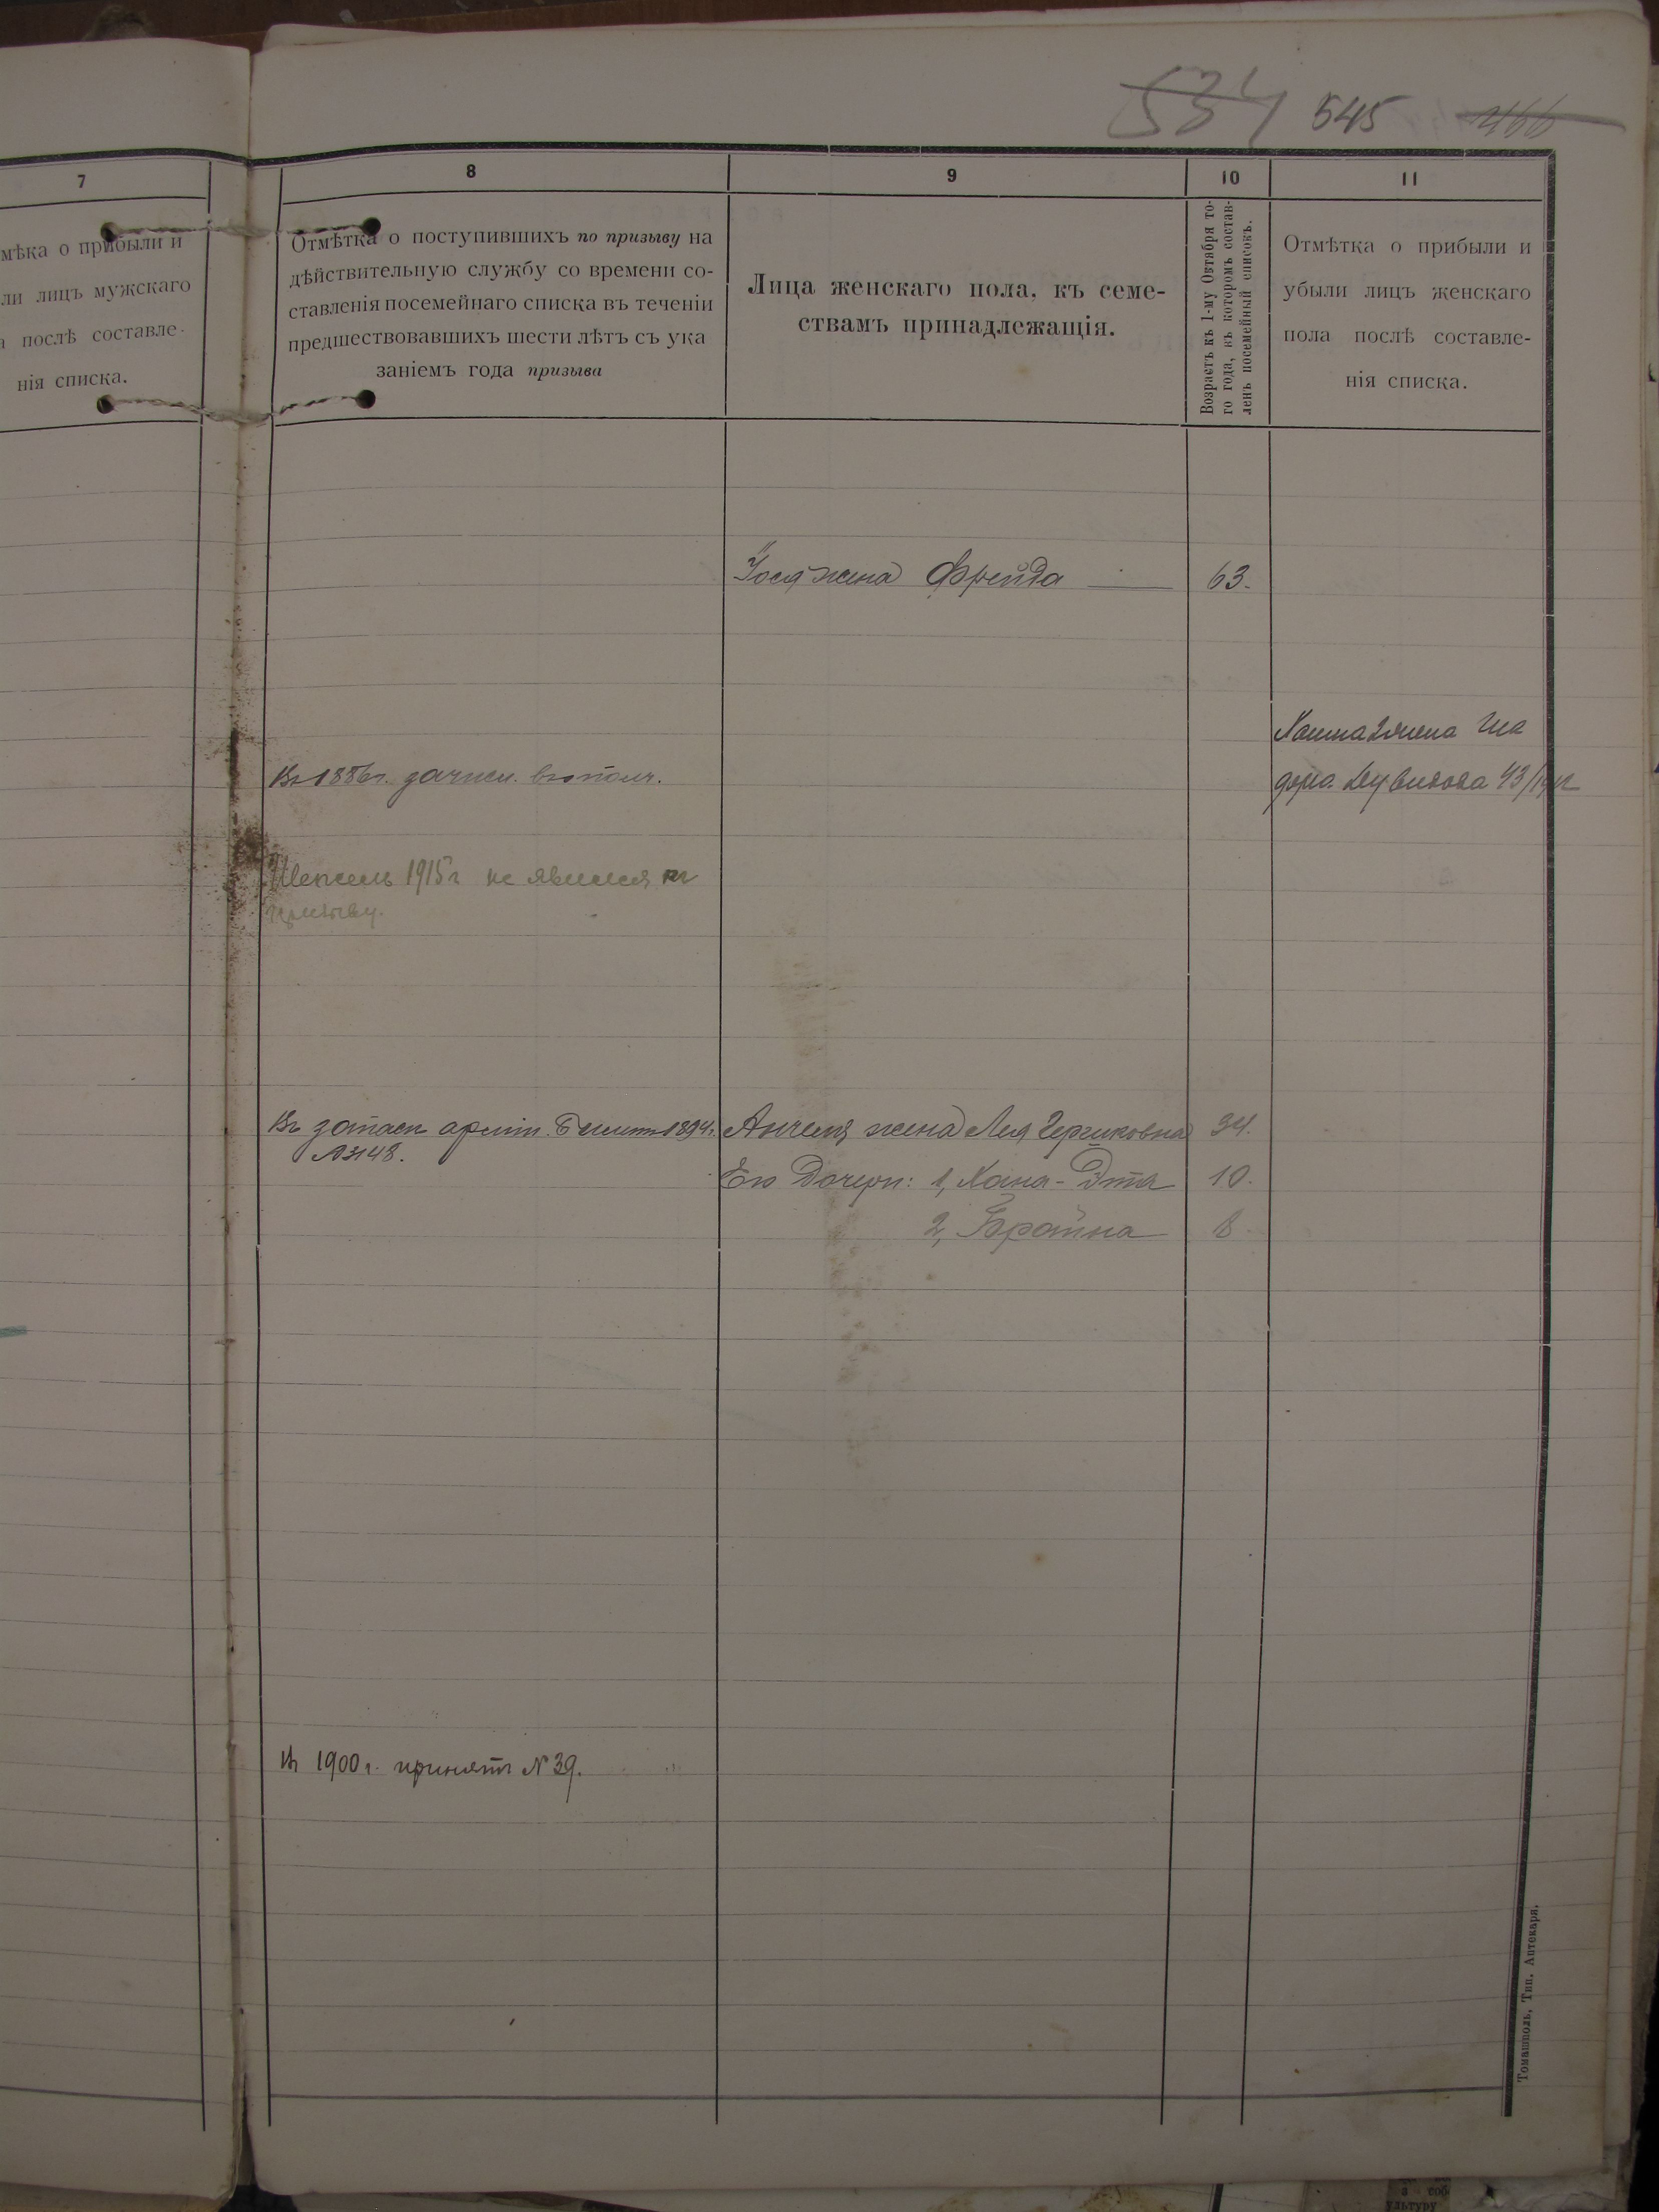 534 545 466
7
мѣка о прибыли и
ли лицъ мужскаго
послѣ составле-
нія списка.
8
Отмѣтка о поступившихъ по призыву на
дѣйствительную службу со времени со-
ставленія посемейнаго списка въ теченіи
предшествовавшихъ шести лѣтъ съ ука
заніемъ года призыва
9
Лица женскаго пола, къ семе-
ствамъ принадлежащія.
10
Возрастъ къ 1-му Октября то-
го года, къ которомъ состав-
ленъ посемейный списокъ.
11
Отмѣтка о прибыли и
убыли лицъ женскаго
пола послѣ составле-
нія списка.
жена Фрейда 63.
Въ 1886г. зачисл. въ ополч.
1915г не явился къ
призыву.
Въ запасъ арміи. Билетъ 1894г.
№ 3148.
Анчеля жена Лея Гершковна 34.
Его Дочери: 1, Хана-Эта 10.
2, Брайна 8
Въ 1900г. принятъ № 39.
Томашполь, Тип. Аптекаря.